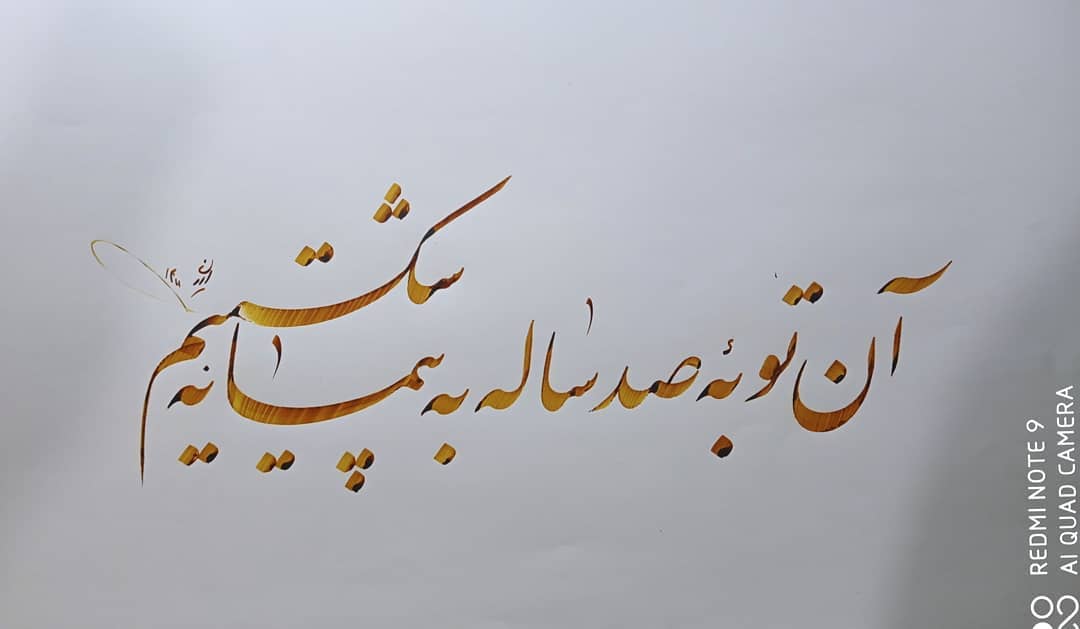 آن توبهٔ صد ساله به پیمانه شکستیم
REDMI NOTE 9
AI QUAD CAMERA